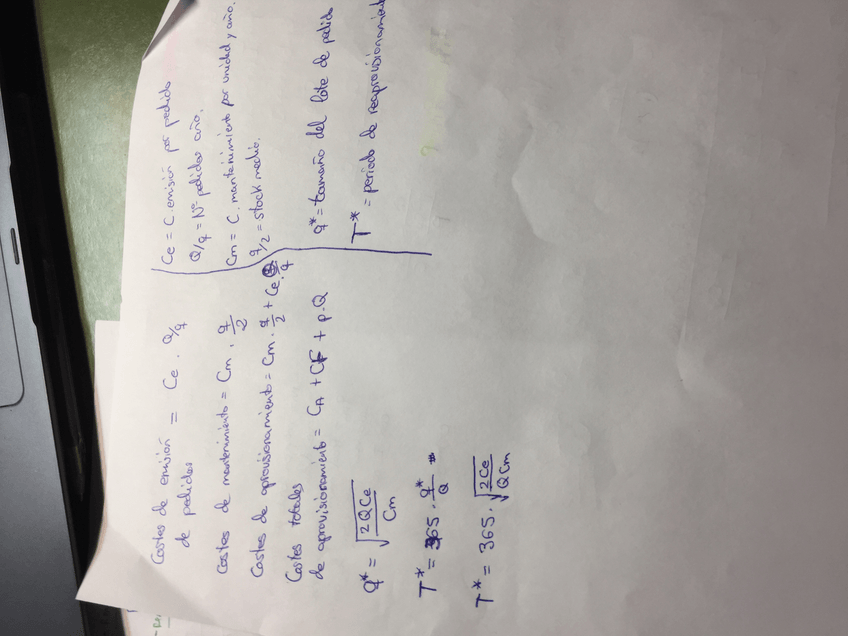 Costes de emisión = Ce . Q/q
de pedidos
Costes de mantenimiento = Cm . q/2
Costes de aprovisionamiento = Cm . q/2 + Ce . Q/q
Costes totales
de aprovisionamiento = CA + CF + p.Q
q* = √(2QCe/Cm)
T* = 365 . q*/Q =
T* = 365 . √(2Ce/QCm)
Ce = C. emisión por pedido
Q/q = Nº pedidos año.
Cm = C. mantenimiento por unidad y año.
q/2 = stock medio.
q* = tamaño del lote de pedido
T* = periodo de reaprovisionamiento